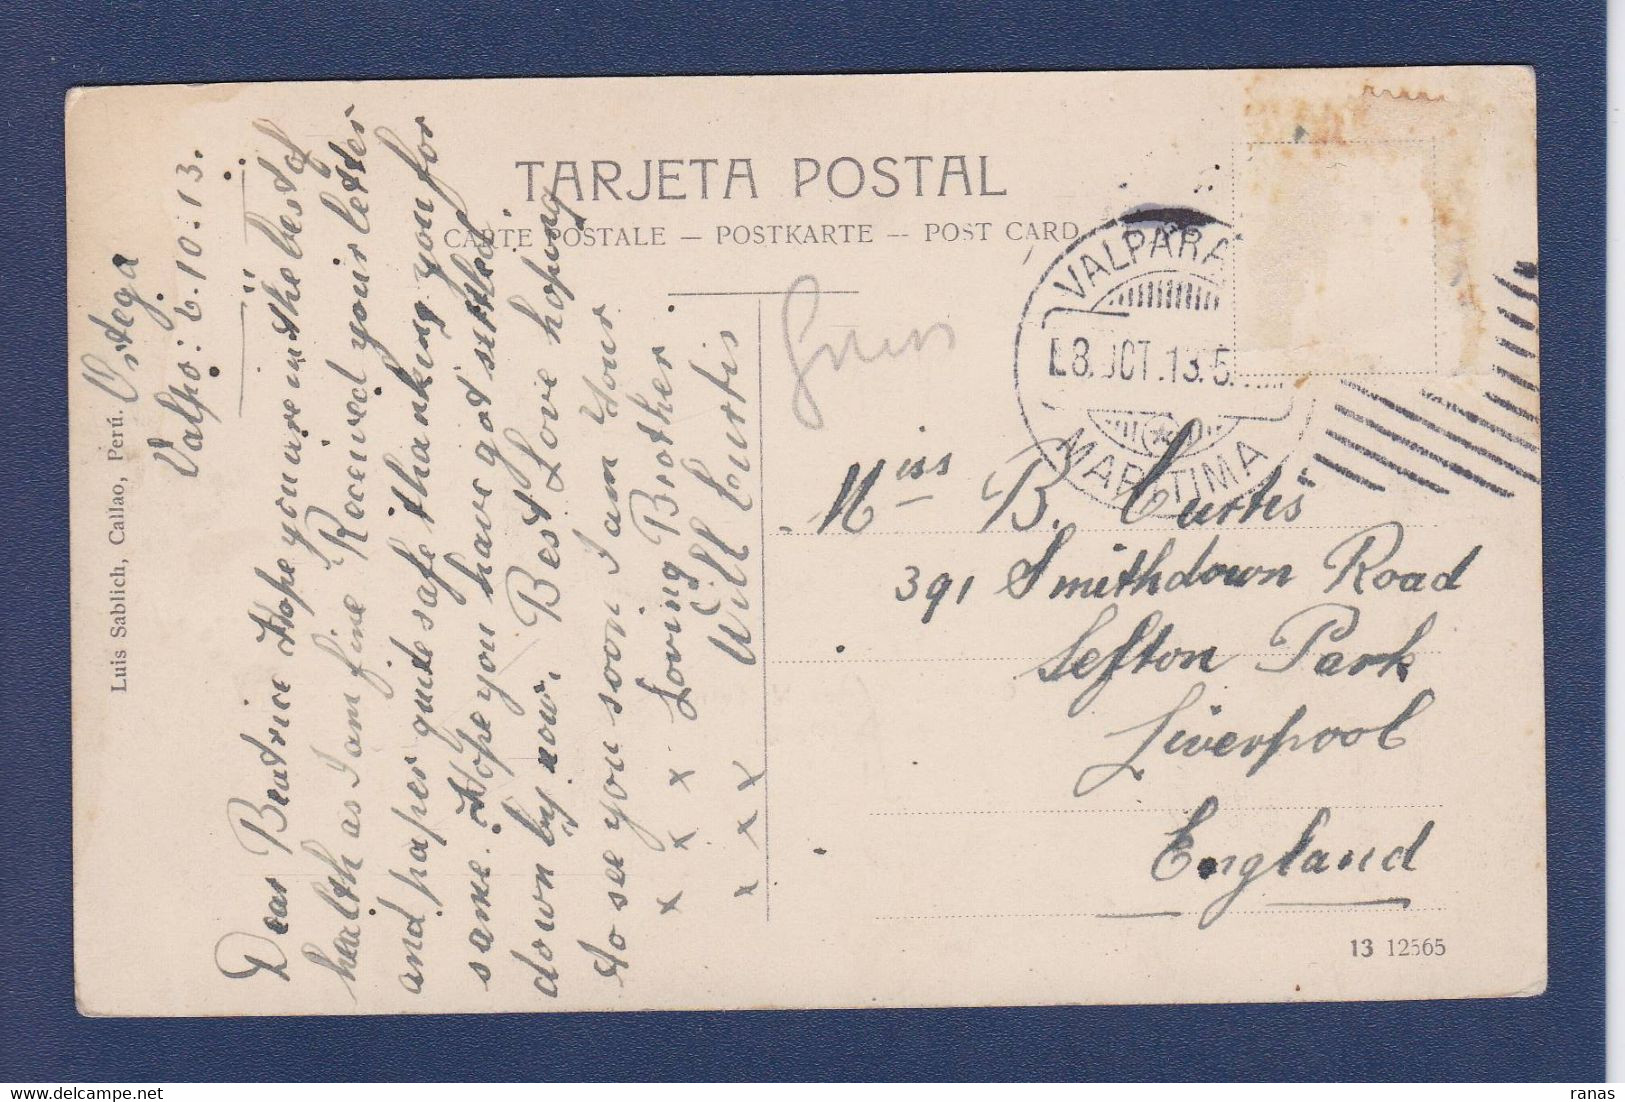 TARJETA POSTAL
CARTE POSTALE — POSTKARTE — POST CARD
Luis Sablich, Callao, Perú.
Ortega
Valpo: 6.10.13.
Dear Beatrice Hope you are in the best of
health as I am fine Received your letter
and paper quite safe thanking you for
same. Hope you have got settled
down by now. Best Love hoping
to see you soon I am Your
Loving Brother
Will Curtis
x x x
x x x
VALPARA
8.OCT.13.5.
MARITIMA
Miss B. Curtis
391 Smithdown Road
Sefton Park
Liverpool
England
13 12565
delcampe.net
ranas